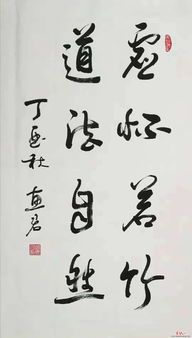 虚怀若竹
道法自然
丁酉秋惠君